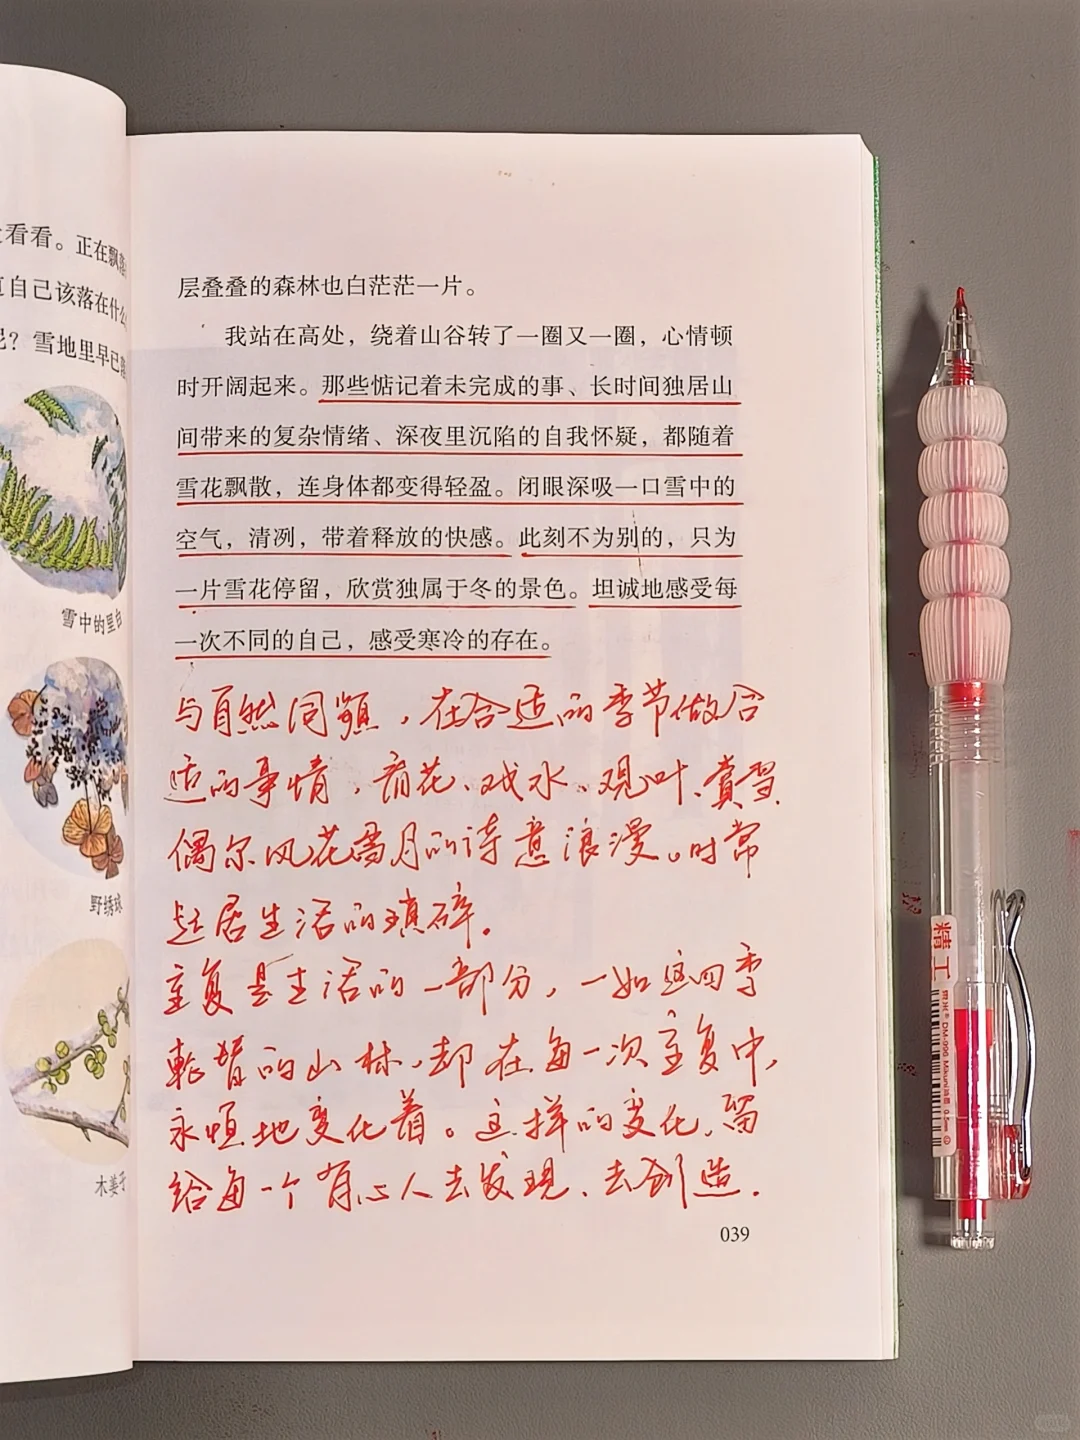 看看。正在飘
自己该落在什么
呢？雪地里早已
雪中的里白
野绣球
木姜子
层叠叠的森林也白茫茫一片。
我站在高处，绕着山谷转了一圈又一圈，心情顿
时开阔起来。那些惦记着未完成的事、长时间独居山
间带来的复杂情绪、深夜里沉陷的自我怀疑，都随着
雪花飘散，连身体都变得轻盈。闭眼深吸一口雪中的
空气，清冽，带着释放的快感。此刻不为别的，只为
一片雪花停留，欣赏独属于冬的景色。坦诚地感受每
一次不同的自己，感受寒冷的存在。
与自然同频，在合适的季节做合
适的事情，看花、戏水、观叶、赏雪
偶尔风花雪月的诗意浪漫。时常
起居生活的琐碎。
重复是生活的一部分，一如这四季
轮替的山林，却在每一次重复中，
永恒地变化着。这样的变化，留
给每一个有心人去发现、去创造。
039
精工